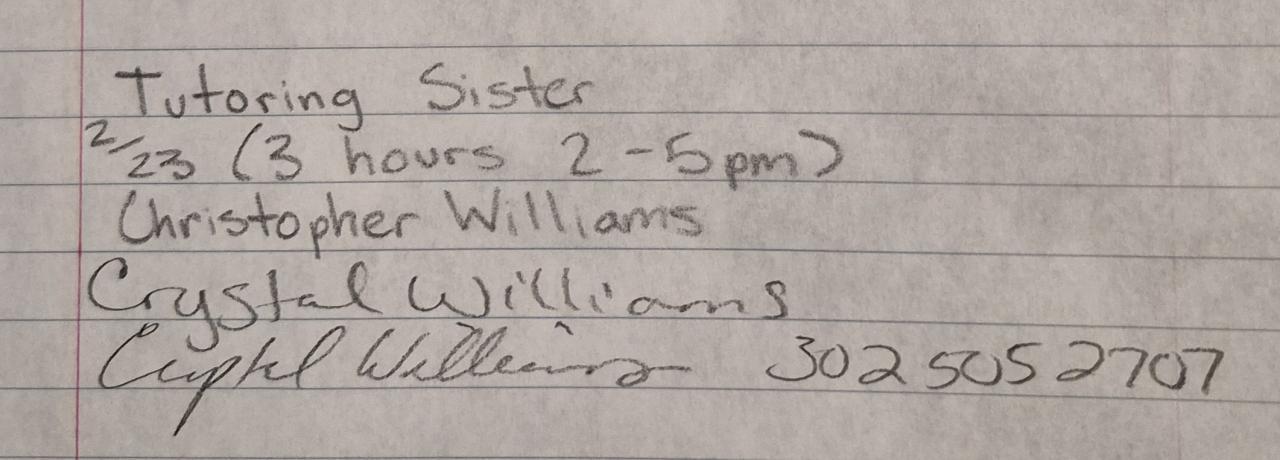 Tutoring Sister
2/23 (3 hours 2-5pm)
Christopher Williams
Crystal Williams
Crystal Williams 3025052707